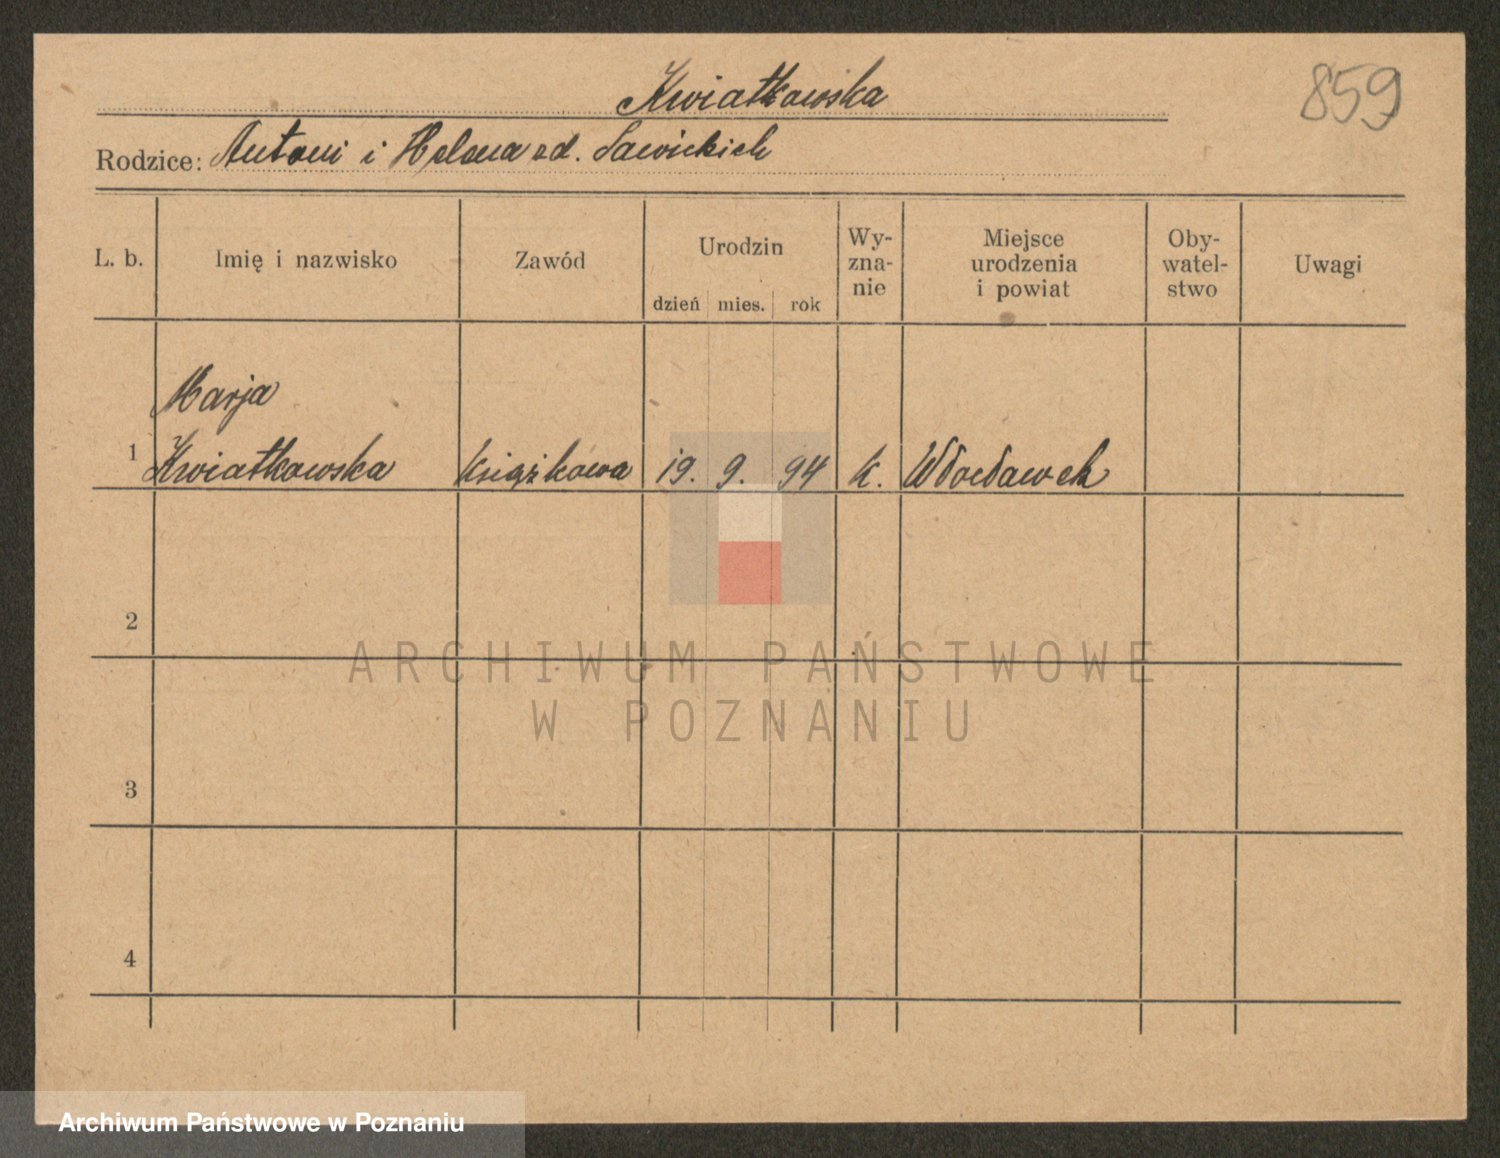 Kwiatkowska
859
Rodzice: Antoni i Helena zd. Sawickich
L. b. Imię i nazwisko Zawód Urodzin dzień mies. rok Wy-zna-nie Miejsce urodzenia i powiat Oby-watel-stwo Uwagi
Marja
1 Kwiatkowska książkowa 19. 9. 94 k. Włocławek
2
ARCHIWUM PAŃSTWOWE
W POZNANIU
3
4
Archiwum Państwowe w Poznaniu